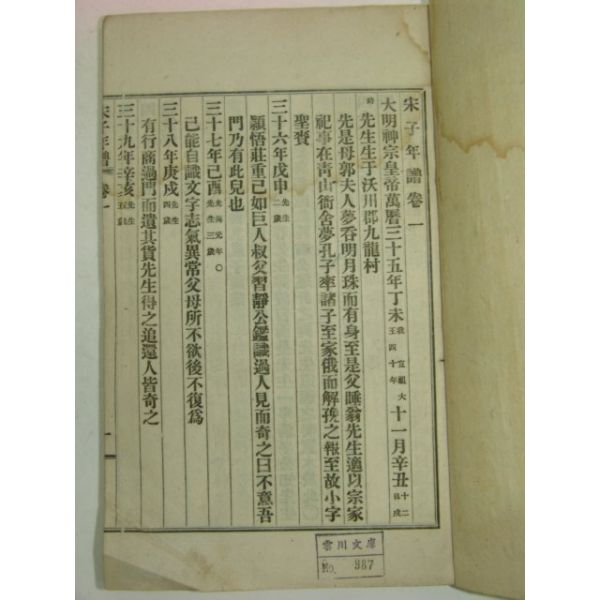 宋子年譜卷一
大明神宗皇帝萬曆三十五年丁未我宣祖大王四十年十一月辛丑十二日戌
時先生生于沃川郡九龍村
先是母郭夫人夢吞明月珠而有身至是父睡翁先生適以宗家
祀事在靑山衙舍夢孔子率諸子至家俄而解娩之報至故小字
聖賚
三十六年戊申先生二歲
穎悟莊重已如巨人叔父習靜公鑑識過人見而奇之曰不意吾
門乃有此兒也
三十七年己酉光海元年○先生三歲
已能自識文字志氣異常父母所不欲後不復爲
三十八年庚戌先生四歲
有行商過門而遺其貨先生得之追還人皆奇之
三十九年辛亥先生五歲
宋子年譜 卷一
一
雲川文庫
No. 987